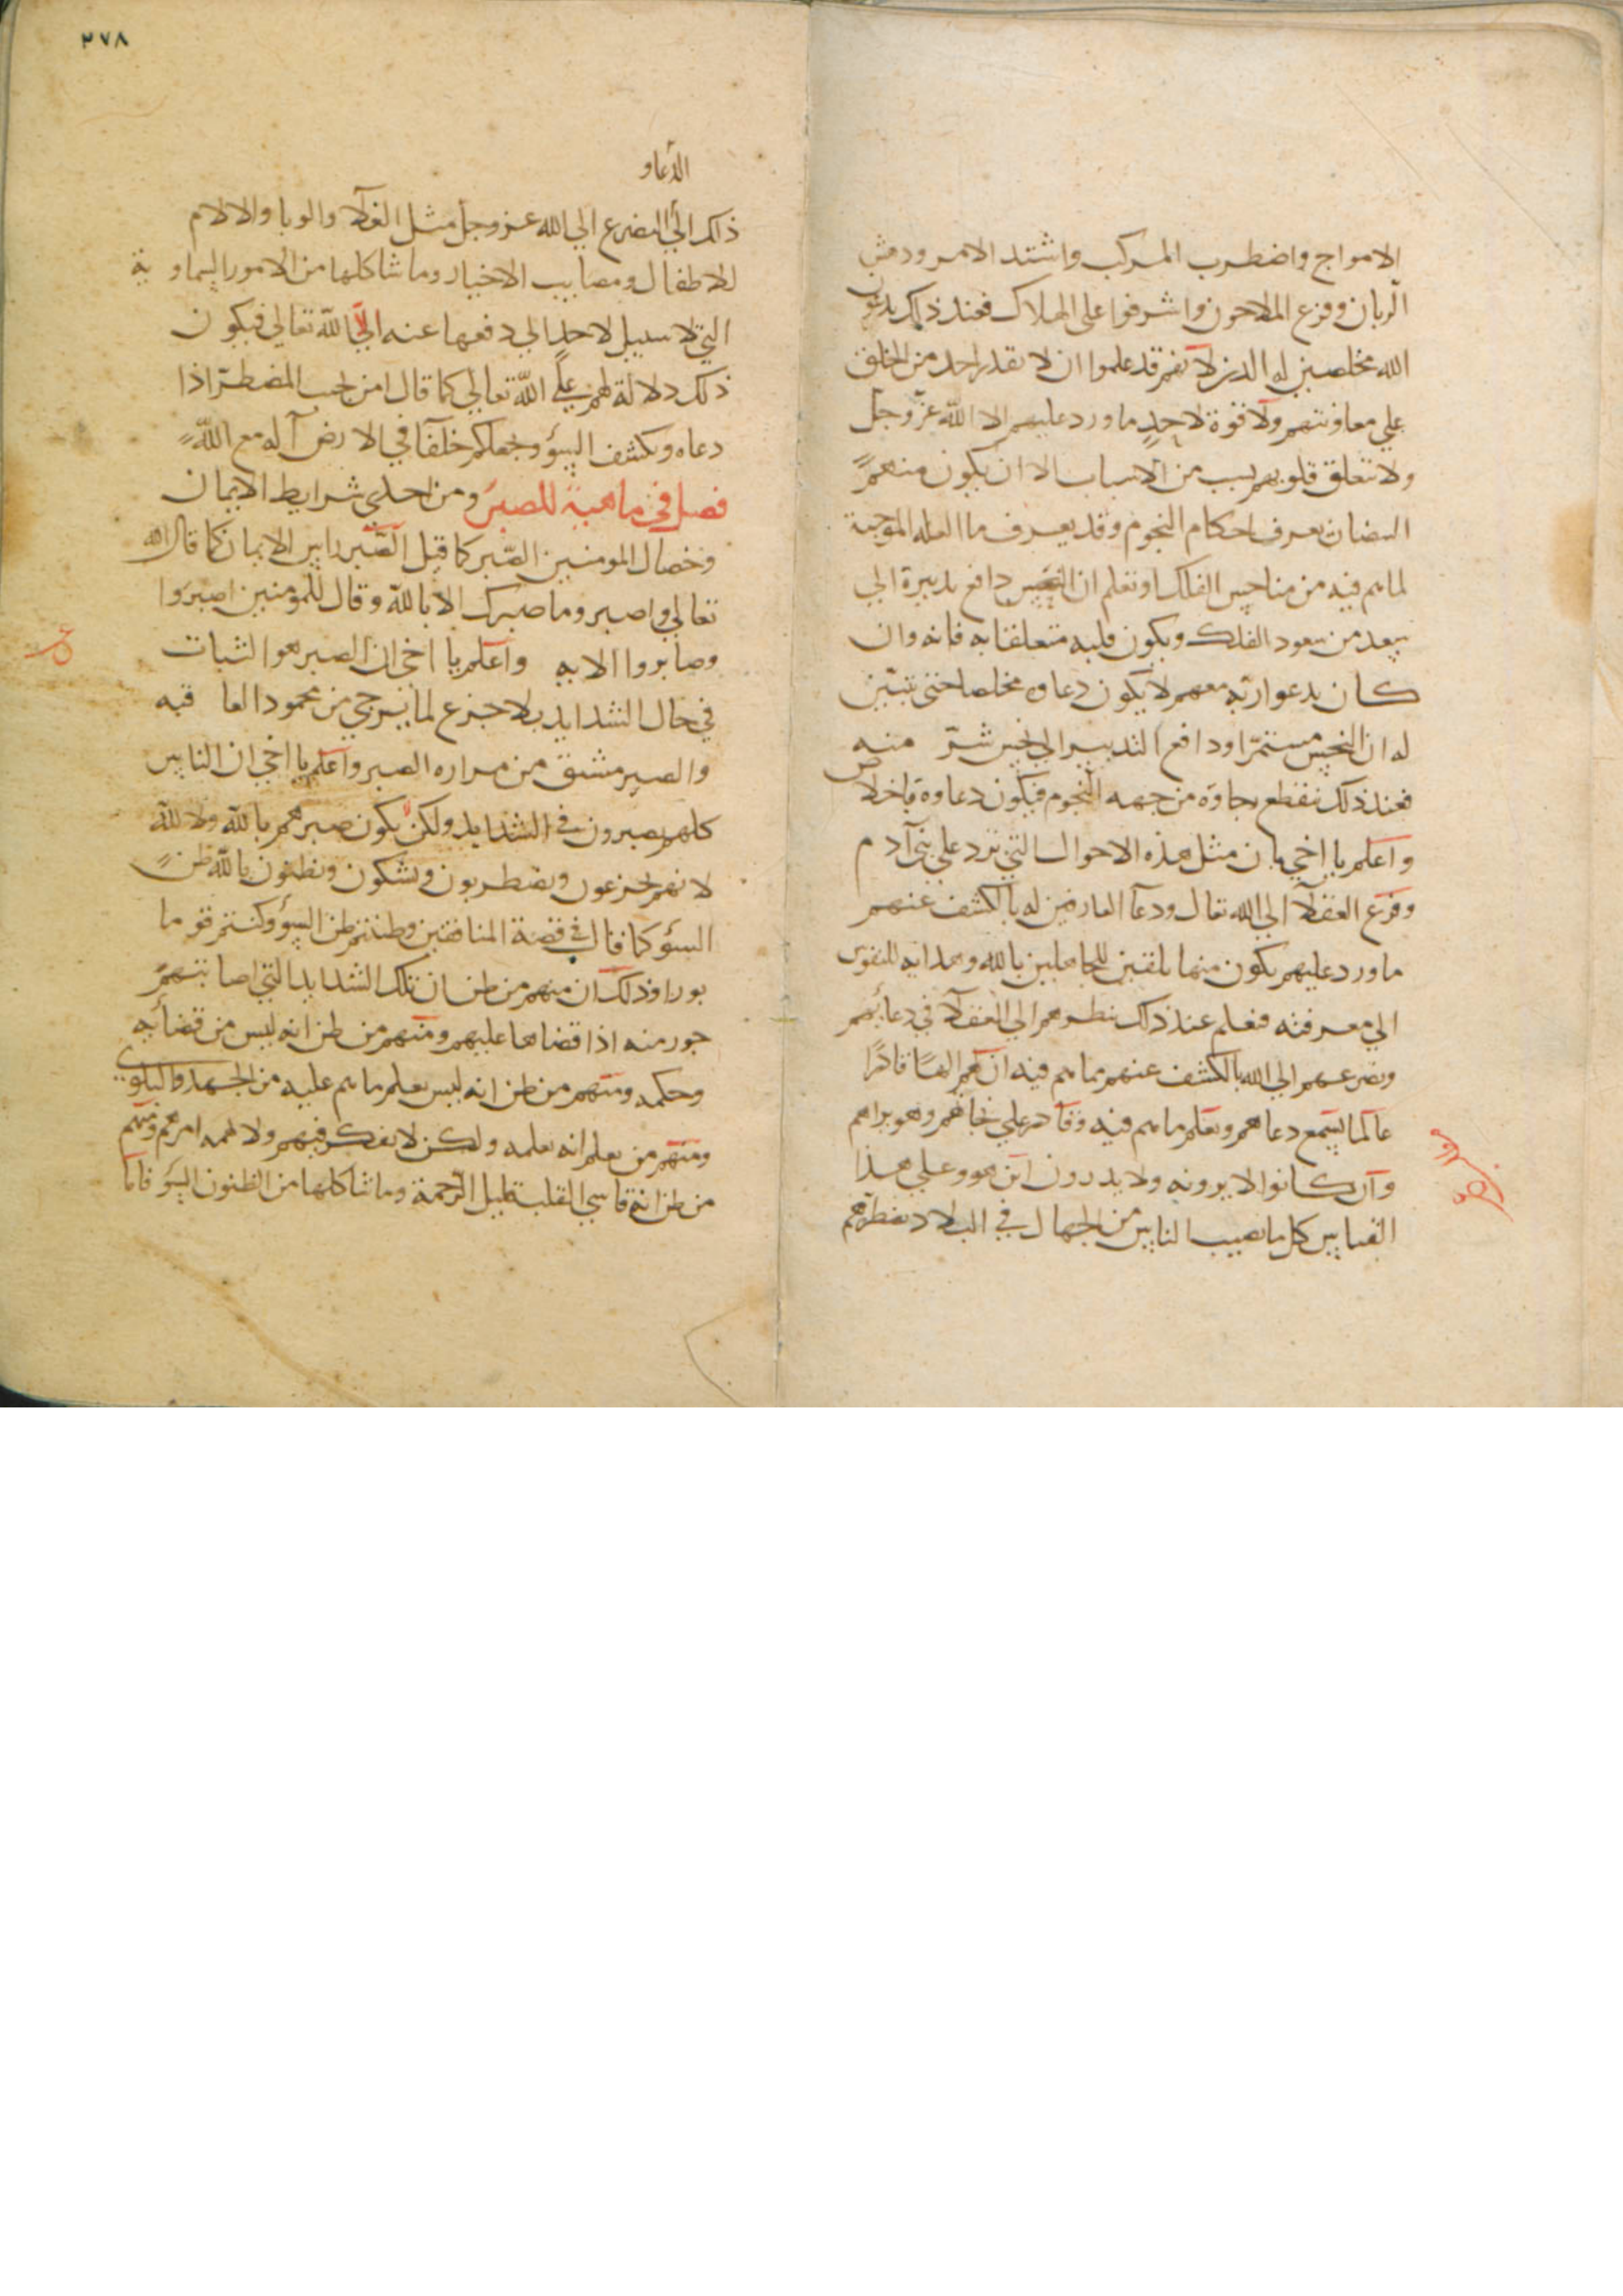 الامواج واضطرب المركب واشتد الامر ودهش
الربان وفزع الملاحون واشرفوا على الهلاك فعند ذلك يدعون
الله مخلصين له الدين لانهم قد علموا ان لا يقدر احد من الخلق
علي معاونتهم ولا قوة لاحدٍ ما ورد عليهم الا الله عزّ وجل
ولا تتعلق قلوبهم بسبب من الاسباب الا ان يكون منهم
انسان يعرف احكام النجوم وقد يعرف ما العله الموجبة
لما هم فيه من مناحس الفلك او تعلم ان النحس دافع تدبيره الي
سعد من سعود الفلك ويكون قلبه متعلقا به فانه وان
كان يدعوا ربه معهم لا يكون دعاوه مخلصا حتى يتبين
له ان النحس مستمرّا ودافع التدبير الي نحس شرّ منه
فعند ذلك ينقطع رجاوه من جهه النجوم فيكون دعاوه باخلاص
واعلم يا اخي بان مثل هذه الاحوال التي ترد علي بني آدم
وفزع العقلآ الي الله تعال ودعآ العارفين له بالكشف عنهم
ما ورد عليهم يكون منها تلقين للجاهلين بالله وهدايه للنفوس
الي معرفته فنعلم عند ذلك بنظرهم الي العقلآ في دعائهم
وتضرعهم الي الله بالكشف عنهم مما هم فيه ان لهم الهًا قادرًا
عالما يسمع دعاهم ويعلم ما هم فيه وقادر علي نجاتهم وهو يراهم
وان كانوا لا يرونه ولا يدرون اين هو وعلي هذا
القياس كل ما يصيب الناس من الجهال في البلاد يضطرهم
٢٧٨
الدعاو
ذلك الي التضرع الي الله عز وجل مثل الغلآ والوبا والالام
للاطفال ومصايب الاخيار وما شاكلها من الامور السماوية
التي لا سبيل لاحدٍ الي دفعها عنه الا الله تعالي فيكون
ذلك دلالة لهم علي الله تعالي كما قال امن يجب المضطرّ اذا
دعاه ويكشف السؤ ويجعلكم خلفآ في الارض آ اله مع الله
فصل في ماهية للصبر ومن احدى شرايط الايمان
وخصال المومنين الصبر كما قيل الصّبر راس الايمان كما قال الله
تعالي واصبر وما صبرك الا بالله وقال للمؤمنين اصبروا
وصابروا الايه واعلم يا اخي ان الصبر هو الثبات
في حال الشدايد بلا جزع لما يرجي من محمود العاقبه
والصبر مشتق من مراره الصبر واعلم يا اخي ان الناس
كلهم يصبرون في الشدايد ولكن لا يكون صبرهم بالله ولا لله
لانهم يجزعون ويضطربون ويشكون ويظنون بالله ظن
السؤ كما قال في قصة المنافقين وظننتم ظن السؤ وكنتم قوما
بورا وذلك ان منهم من ظن ان تلك الشدايد التي اصابتهم
جور منه اذا قضاها عليهم ومنهم من ظن انه ليس من قضائه
وحكمه ومنهم من ظن انه ليس يعلم ما هم عليه من الجهد والبلوى
ومنهم من يعلم انه يعلمه ولكن لا يفكر فيهم ولا يهمه امرهم ومنهم
من ظن انه قاسي القلب قليل الرحمة وما شاكلها من الظنون السؤ فاما